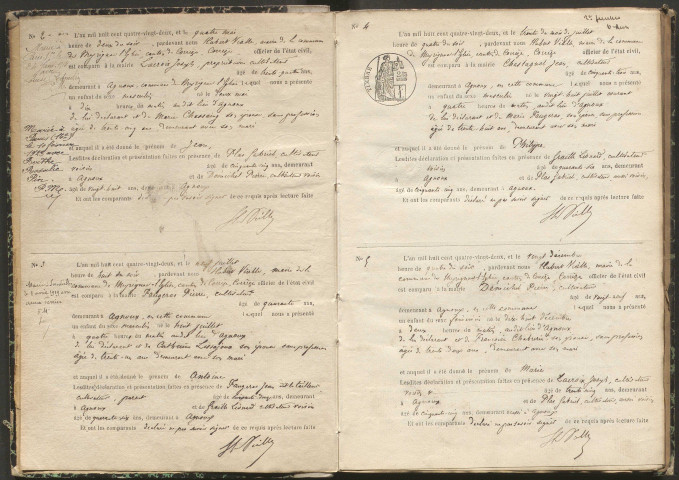 No 2
L'an mil huit cent quatre-vingt-deux, et le quatre mai
heure de deux du soir, pardevant nous Hubert Vialle, maire de la commune
de Meyrignac l'Eglise, canton de Corrèze Corrèze officier de l'état civil,
est comparu à la mairie Lacroix Joseph propriétaire cultivateur
âgé de trente quatre ans,
demeurant à Agnoux, commune de Meyrignac l'Eglise, lequel nous a présenté
un enfant du sexe masculin né le deux mai
à dix heures du matin au dit lieu d'Agnoux
de lui déclarant et de Marie Chassaing son épouse, sans profession,
âgée de trente cinq ans demeurant avec son mari
et auquel il a été donné le prénom de Jean,
Lesdites déclaration et présentation faites en présence de Plas Gabriel, cultivateur
voisin âgé de cinquante cinq ans, demeurant
à Agnoux et de Demichel Pierre, cultivateur voisin
âgé de vingt huit ans, demeurant à Agnoux
Et ont les comparants déclaré ne pas savoir signer de ce requis après lecture faite
Ht Vialle
No 3
L'an mil huit cent quatre-vingt-deux, et le juillet
heure de huit du soir, pardevant nous Hubert Vialle, maire de la
commune de Meyrignac-l'Eglise, canton de Corrèze, Corrèze officier de l'état civil
est comparu à la mairie Faugeras Pierre, cultivateur
âgé de quarante ans,
demeurant à Agnoux, en cette commune lequel nous a présenté
un enfant du sexe masculin né le huit juillet
à quatre heures du matin audit lieu d'Agnoux
de lui déclarant et de Catherine son épouse, sans profession
âgée de trente ans demeurant avec son mari
et auquel il a été donné le prénom de Antoine
Lesdites déclaration et présentation faites en présence de Faugeras Jean
cultivateur, parent âgé de ans, demeurant
à Agnoux et de Graille Léonard cultivateur voisin
âgé de ans, demeurant à Agnoux
Et ont les comparants déclaré ne pas savoir signer de ce requis après lecture faite
Ht Vialle
No 4
L'an mil huit cent quatre-vingt-deux, et le trente du mois de juillet
heure de quatre du soir, pardevant nous Hubert Vialle, maire de la commune
de Meyrignac l'Eglise, canton de Corrèze, Corrèze officier de l'état civil,
est comparu à la mairie Chastagnol Jean, cultivateur
âgé de cinquante trois ans,
demeurant à Agnoux, en cette commune lequel nous a présenté
un enfant du sexe masculin né le vingt huit juillet courant
à quatre heures du matin, audit lieu d'Agnoux
de lui déclarant et de Marie Faugeras, son épouse, sans profession
âgée de trente huit ans, demeurant avec son mari
et auquel il a été donné le prénom de Philippe.
Lesdites déclaration et présentation faites en présence de Graille Léonard, cultivateur
voisin âgé de ans, demeurant
à Agnoux et de Plas Gabriel, cultivateur voisin,
âgé de cinquante cinq ans, demeurant à Agnoux.
Et ont les comparants déclaré ne pas savoir signer de ce requis après lecture faite
Ht Vialle
No 5
L'an mil huit cent quatre-vingt-deux, et le vingt décembre
heure de quatre du soir, pardevant nous Hubert Vialle, maire de la
commune de Meyrignac-l'Eglise, canton de Corrèze, Corrèze officier de l'état civil
est comparu à la mairie Demichel Pierre, cultivateur
âgé de vingt neuf ans,
demeurant à Agnoux, en cette commune lequel nous a présenté
un enfant du sexe féminin né le dix huit décembre
à deux heures du matin, audit lieu d'Agnoux
de lui déclarant et de son épouse, sans profession
âgée de trente deux ans, demeurant avec son mari
et auquel il a été donné le prénom de Marie
Lesdites déclaration et présentation faites en présence de Lacroix Joseph, cultivateur
voisin âgé de trente cinq ans, demeurant
à Agnoux et de Plas Gabriel, cultivateur, aussi voisin
âgé de cinquante cinq ans, demeurant à Agnoux
Et ont les comparants déclaré ne pas savoir signer de ce requis après lecture faite
Ht Vialle